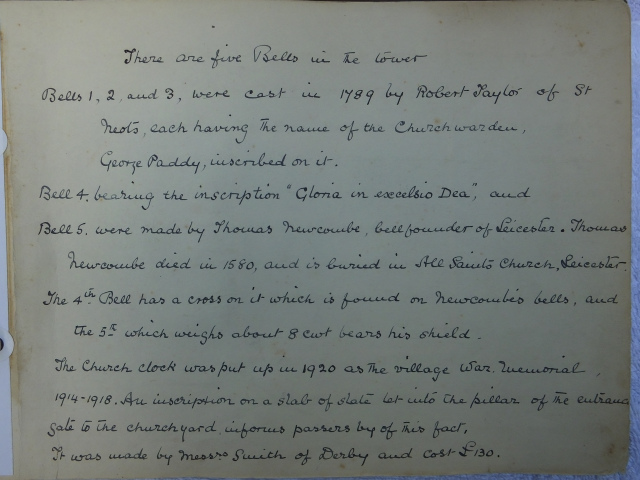 There are five Bells in the tower
Bells 1, 2, and 3, were cast in 1789 by Robert Taylor of St
Neots, each having the name of the Churchwarden,
George Paddy, inscribed on it.
Bell 4. bearing the inscription "Gloria in excelsio Dea", and
Bell 5. were made by Thomas Newcombe, bellfounder of Leicester. Thomas
Newcombe died in 1580, and is buried in All Saints Church, Leicester.
The 4th Bell has a cross on it which is found on Newcombe's bells, and
the 5th which weighs about 8 cwt bears his shield.
The Church clock was put up in 1920 as the village War Memorial,
1914-1918. An inscription on a slab of slate let into the pillar of the entrance
gate to the churchyard informs passers by of this fact.
It was made by Messrs Smith of Derby and cost £130.